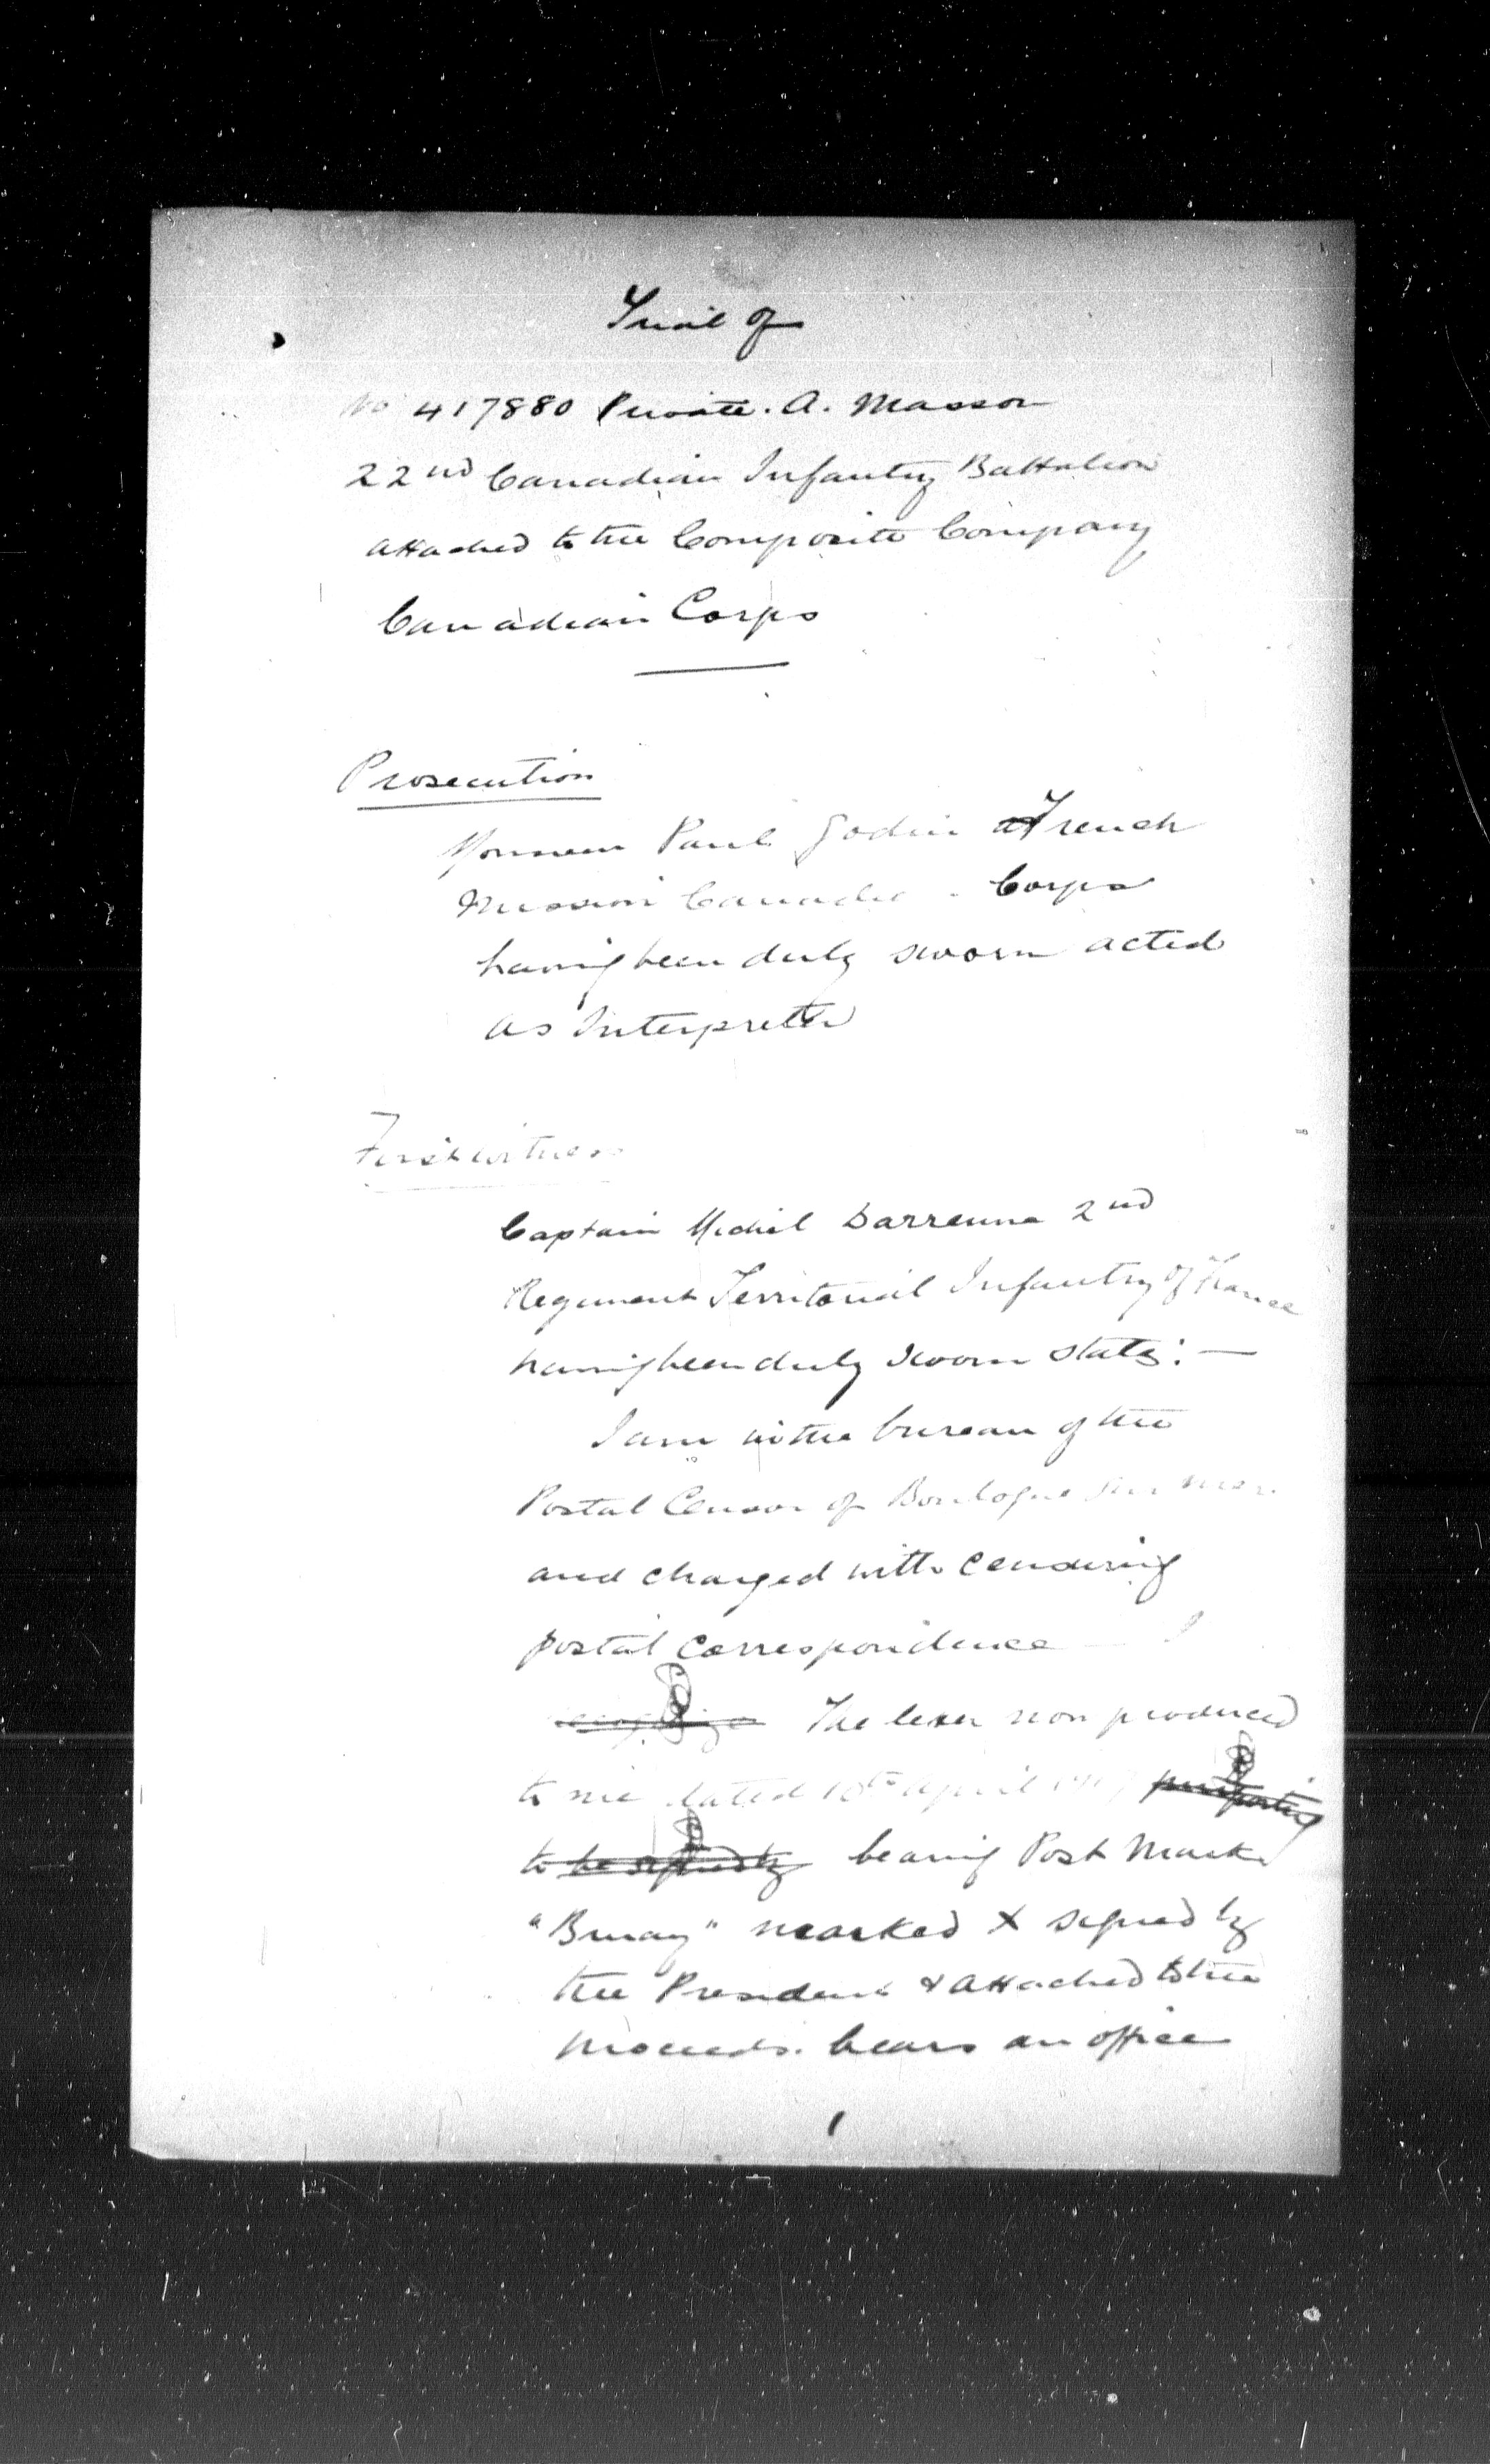 Trial of
No 417880 Private. A. Masson
22nd Canadian Infantry Battalion
attached to the Composite Company
Canadian Corps
Prosecution
Paul Godin French
Mission Corps
having been duly sworn acted
as Interpreter
First witness
Captain Michel 2nd
Regiment Territorial Infantry of France
having been duly sworn states: —
I am in the bureau of the
Postal Censor of Boulogne sur mer
and charged with censoring
postal correspondence — I
recognize The letter now produced
to me dated April 1917 purporting
to be signed by bearing Post Mark
"Bruay" marked X signed by
the President & attached to the
proceeds. bears an office
1